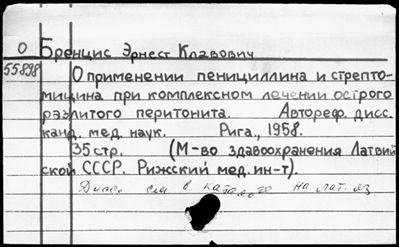 О Бренцис Эрнест Клавович
55898 О применении пенициллина и стрепто-
мицина при комплексном лечении острого
разлитого перитонита. Автореф. дисс.
канд. мед. наук. Рига., 1958.
35 стр. (М-во здавоохранения Латвий
ской ССР. Рижский мед. ин-т).
Дисс. см в каталоге на лат. яз.